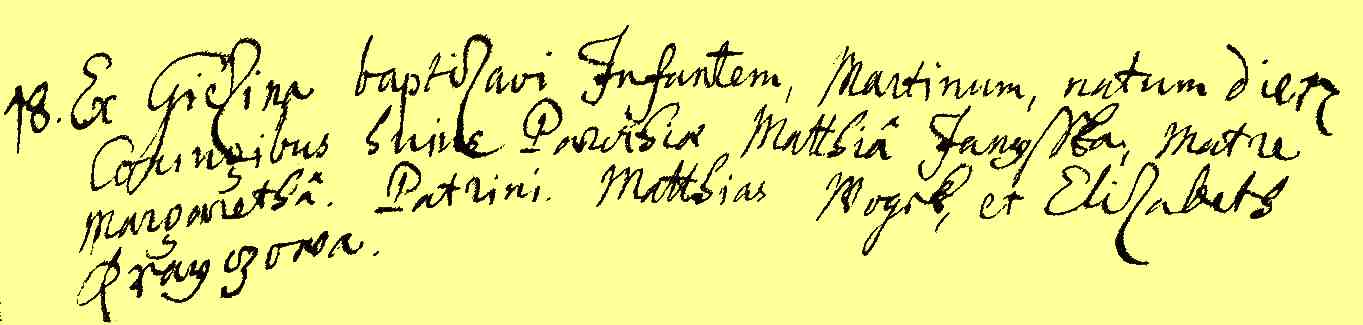 18. Ex Gieſina baptiſavi Infantem, Martinum, natum die
Coñjungibus huius Parochiæ Matthiâ Janyſka, Matre
Margarethâ. Patrini. Matthias Wogik, et Eliſabeth
Krayczowa.